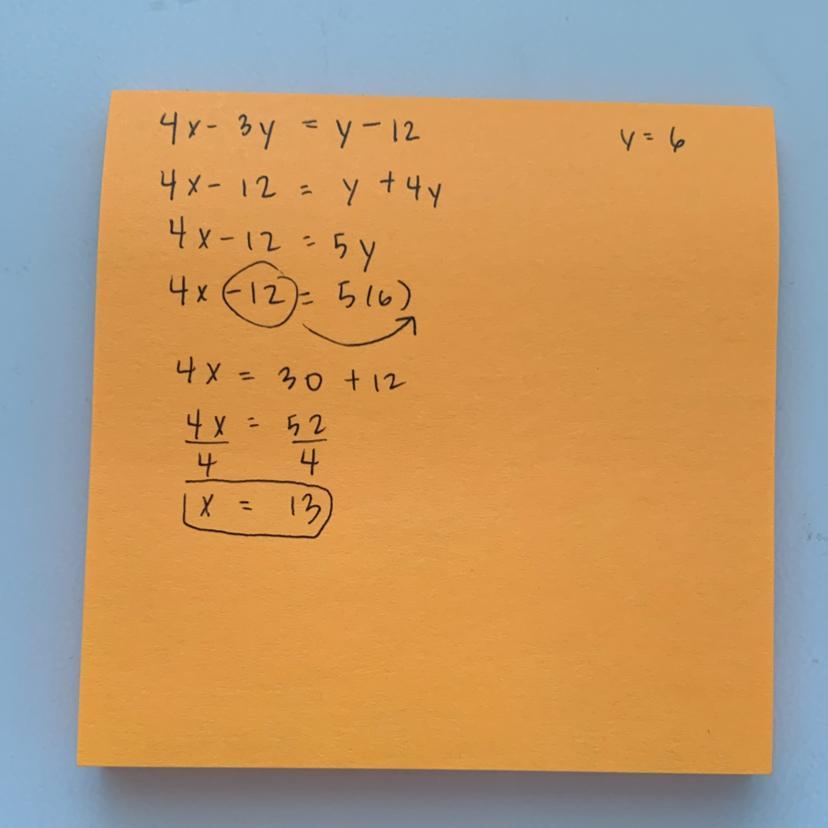 4x - 3y = y - 12
y = 6
4x - 12 = y + 4y
4x - 12 = 5y
4x - 12 = 5(6)
4x = 30 + 12
4x/4 = 52/4
x = 13